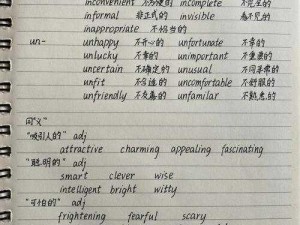 inconvenient 不方便的 incomplete 不完全的
informal 非正式的 invisible 看不见的
inappropriate 不恰当的
un- unhappy 不开心的 unfortunate 不幸的
unlucky 不幸的 unimportant 不重要的
uncertain 不确定的 unusual 不同寻常的
unfit 不合适的 uncomfortable 不舒服的
unfriendly 不友善的 unfamilar 不熟悉的
同义
"吸引人的" adj
attractive charming appealing fascinating
"聪明的" adj
smart clever wise
intelligent bright witty
"可怕的" adj
frightening fearful scary